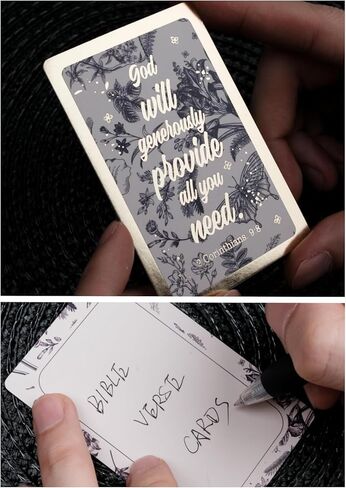 God
will
generously
provide
all you
need.
2 Corinthians 9:8
BIBLE
VERSE
CARDS